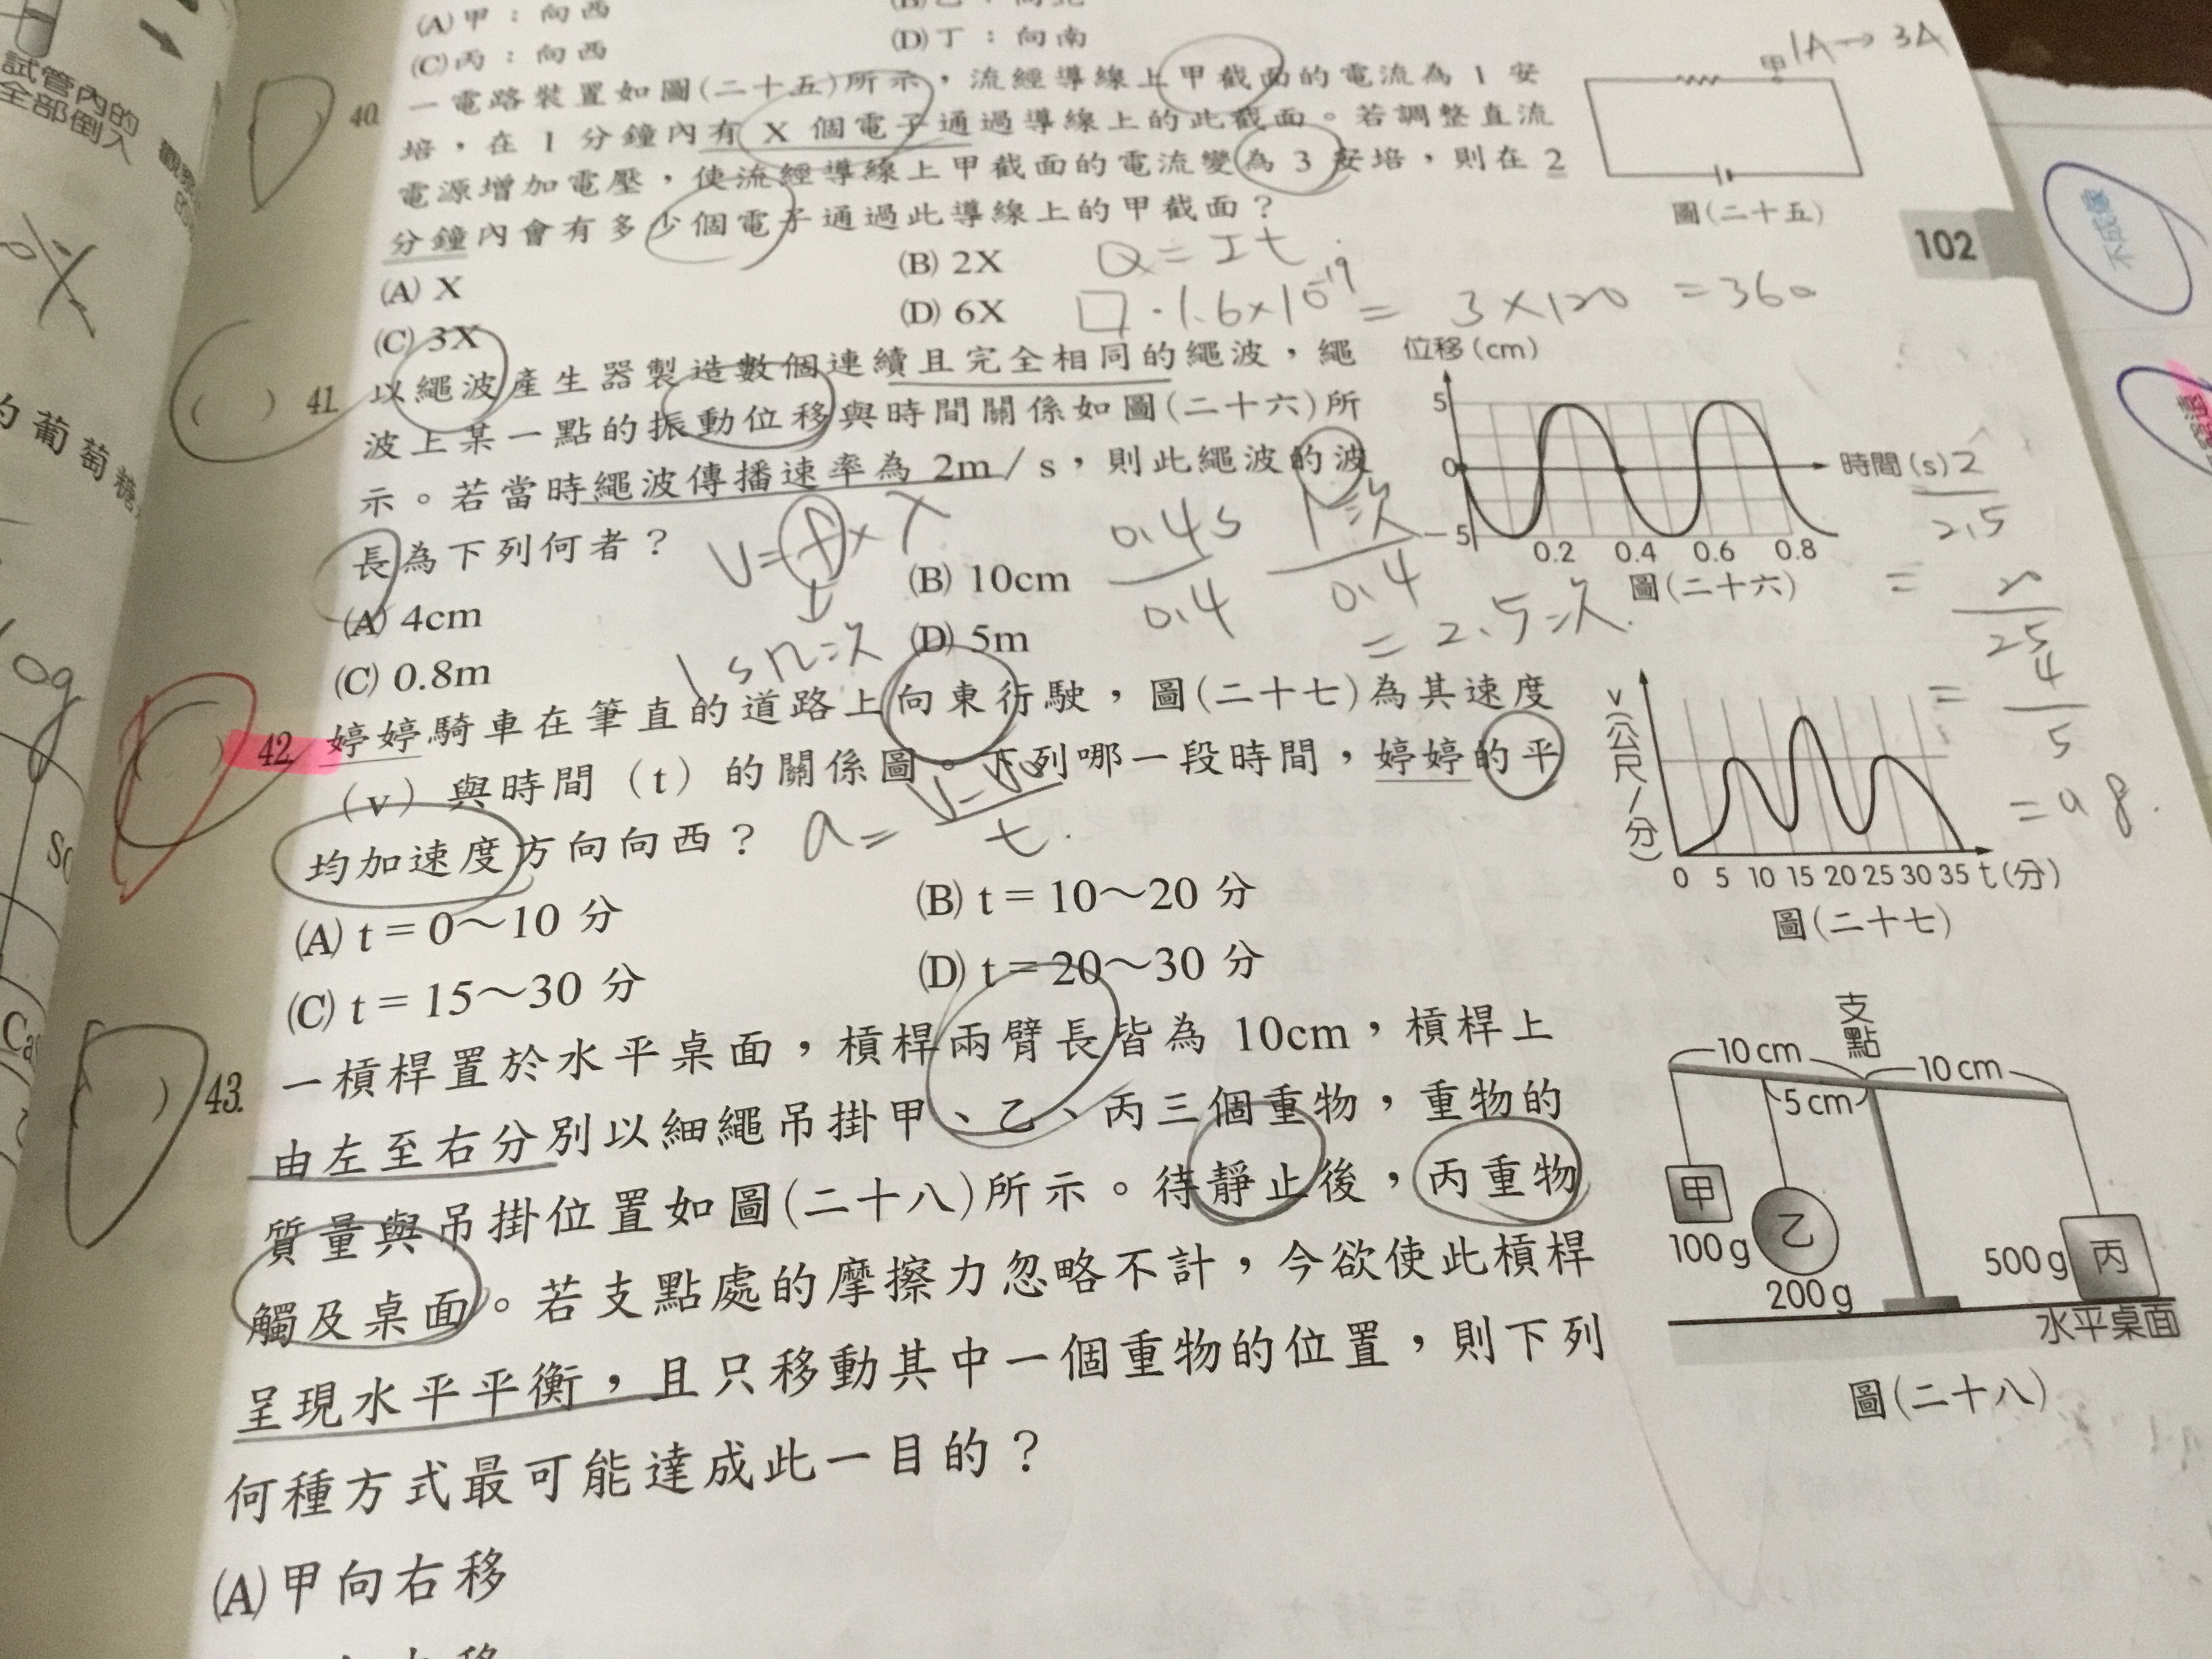 試管內的
全部倒入
的葡萄糖
(A)甲：向西
(C)丙：向西
(D)丁：向南
40. 一電路裝置如圖(二十五)所示，流經導線上甲截面的電流為 1 安
培，在 1 分鐘內有 X 個電子通過導線上的此截面。若調整直流
電源增加電壓，使流經導線上甲截面的電流變為 3 安培，則在 2
分鐘內會有多少個電子通過此導線上的甲截面？
(A) X
(B) 2X
(C) 3X
(D) 6X
甲
1A→3A
圖(二十五)
102
Q = It
□·1.6×10⁻¹⁹ = 3×120 = 360
( ) 41. 以繩波產生器製造數個連續且完全相同的繩波，繩
波上某一點的振動位移與時間關係如圖(二十六)所
示。若當時繩波傳播速率為 2m / s，則此繩波的波
長為下列何者？
(A) 4cm
(B) 10cm
(C) 0.8m
(D) 5m
位移(cm)
5
0
-5
時間(s)
0.2 0.4 0.6 0.8
圖(二十六)
V = f × λ
1s n次
0.4s
0.4
1次
0.4
= 2.5次.
2
2.5
=
25
= 4
5
( ) 42. 婷婷騎車在筆直的道路上向東行駛，圖(二十七)為其速度
（v）與時間（t）的關係圖。下列哪一段時間，婷婷的平
均加速度方向向西？
a =
t
(A) t = 0～10 分
(B) t = 10～20 分
(C) t = 15～30 分
(D) t = 20～30 分
v(公尺/分)
0 5 10 15 20 25 30 35 t(分)
圖(二十七)
( ) 43. 一槓桿置於水平桌面，槓桿兩臂長皆為 10cm，槓桿上
由左至右分別以細繩吊掛甲、乙、丙三個重物，重物的
質量與吊掛位置如圖(二十八)所示。待靜止後，丙重物
觸及桌面。若支點處的摩擦力忽略不計，今欲使此槓桿
呈現水平平衡，且只移動其中一個重物的位置，則下列
何種方式最可能達成此一目的？
(A)甲向右移
支點
10 cm
10 cm
5 cm
甲
100 g
乙
200 g
丙
500 g
水平桌面
圖(二十八)